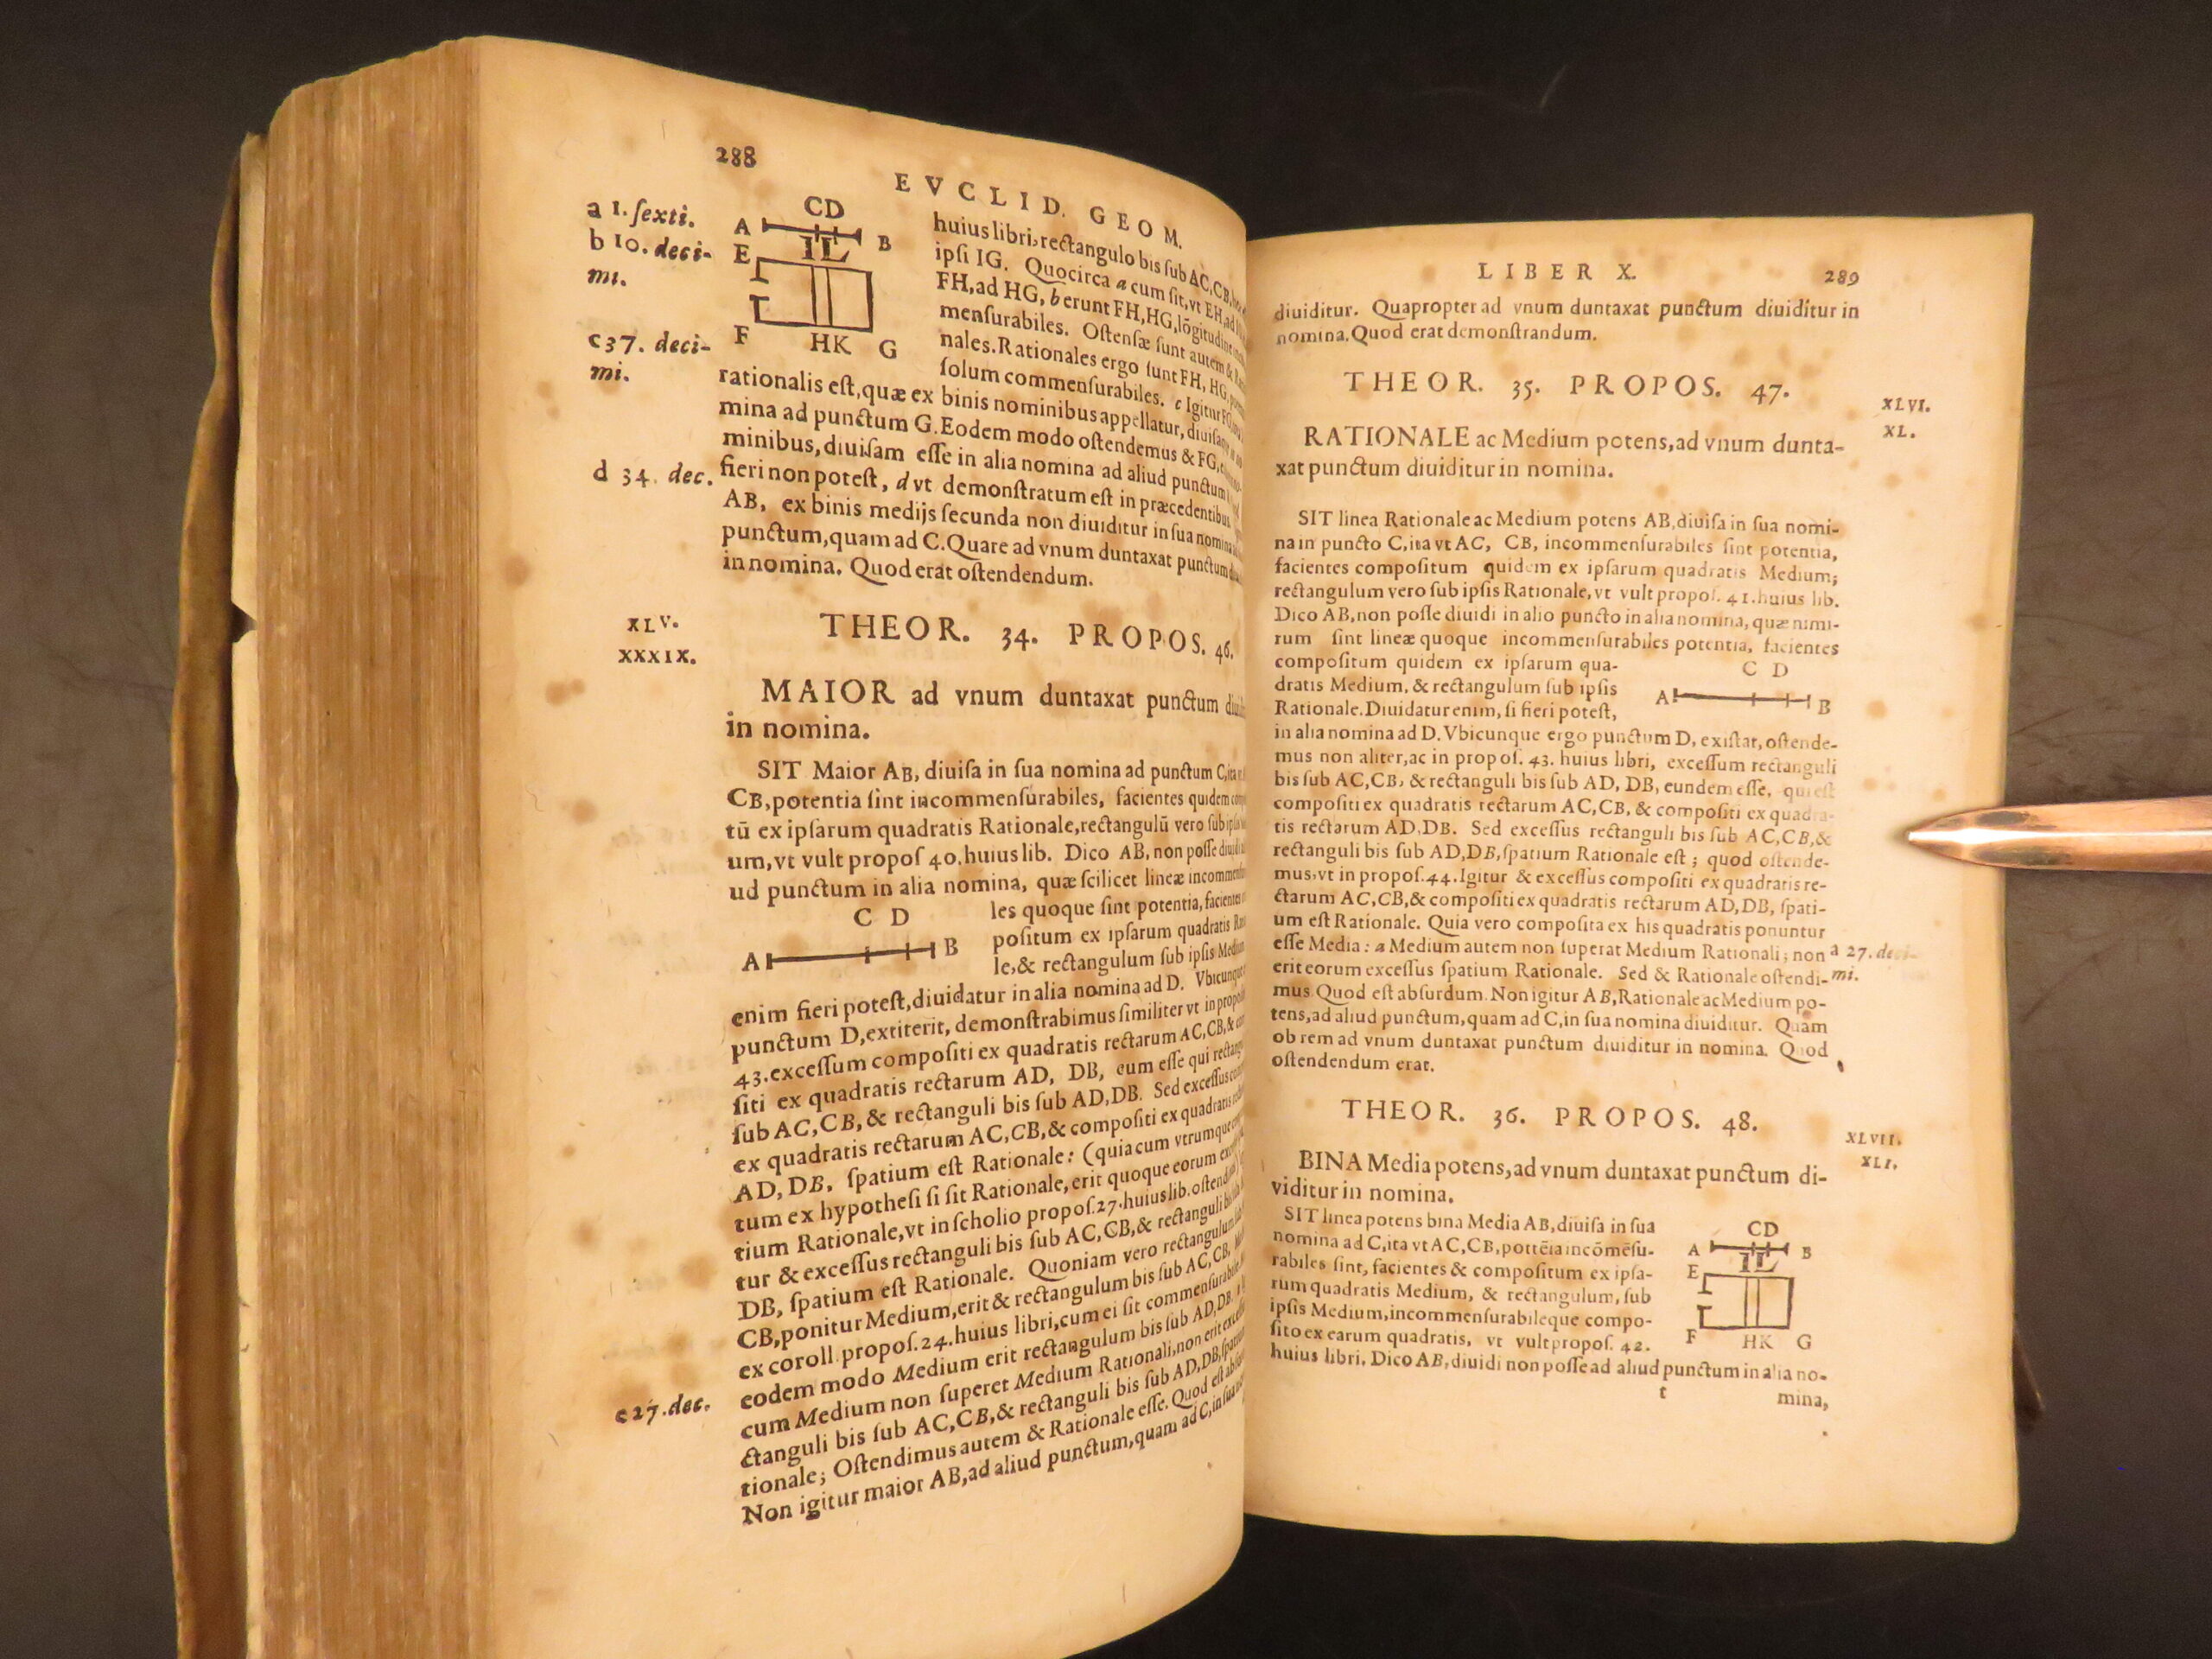 288
EVCLID. GEOM.
a 1. ſexti.
b 10. deci-
mi.
c 37. deci-
mi.
d 34. dec.
CD
A B
IL
E
F HK G
huius libri, rectangulo bis ſub AC, CB,
ipſi IG. Quocirca a cum ſit, vt EH, ad
FH, ad HG, b erunt FH, HG, lōgitudine
menſurabiles. Oſtenſæ ſunt autem &
nales. Rationales ergo ſunt FH, HG,
ſolum commenſurabiles. c Igitur
rationalis eſt, quæ ex binis nominibus appellatur, diuiſa
mina ad punctum G. Eodem modo oſtendemus & FG,
minibus, diuiſam eſſe in alia nomina ad aliud punctum
fieri non poteſt, d vt demonſtratum eſt in præcedentibus
AB, ex binis medijs ſecunda non diuiditur in ſua nomina
punctum, quam ad C. Quare ad vnum duntaxat punctum
in nomina. Quod erat oſtendendum.
XLV.
XXXIX.
THEOR. 34. PROPOS. 46.
MAIOR ad vnum duntaxat punctum
in nomina.
SIT Maior AB, diuiſa in ſua nomina ad punctum C, ita
CB, potentia ſint incommenſurabiles, facientes quidem
tū ex ipſarum quadratis Rationale, rectangulū vero ſub
um, vt vult propoſ 40. huius lib. Dico AB, non poſſe
ud punctum in alia nomina, quæ ſcilicet lineæ
C D
A B
les quoque ſint potentia, facientes
poſitum ex ipſarum quadratis
le, & rectangulum ſub ipſis
enim fieri poteſt, diuidatur in alia nomina ad D. Vbicunque
punctum D, extiterit, demonſtrabimus ſimiliter vt in
43. exceſſum compoſiti ex quadratis rectarum AC, CB, &
ſiti ex quadratis rectarum AD, DB, eum eſſe qui
ſub AC, CB, & rectanguli bis ſub AD, DB. Sed exceſſus
ex quadratis rectarum AC, CB, & compoſiti ex quadratis
AD, DB, ſpatium eſt Rationale: (quia cum vtrumque
tum ex hypotheſi ſi ſit Rationale, erit quoque eorum
tium Rationale, vt in ſcholio propoſ. 27. huius lib.
tur & exceſſus rectanguli bis ſub AC, CB, & rectanguli
DB, ſpatium eſt Rationale. Quoniam vero rectangulum
CB, ponitur Medium, erit & rectangulum bis ſub AC, CB,
ex coroll. propoſ. 24. huius libri, cum ei ſit
eodem modo Medium erit rectangulum bis ſub AD, DB.
cum Medium non ſuperet Medium Rationali, non erit
ctanguli bis ſub AC, CB, & rectanguli bis ſub AD, DB,
tionale; Oſtendimus autem & Rationale eſſe. Quod eſt
Non igitur maior AB, ad aliud punctum, quam ad C,
e 27. dec.
LIBER X. 289
diuiditur. Quapropter ad vnum duntaxat punctum diuiditur in
nomina. Quod erat demonſtrandum.
THEOR. 35. PROPOS. 47.
XLVI.
XL.
RATIONALE ac Medium potens, ad vnum dunta-
xat punctum diuiditur in nomina.
SIT linea Rationale ac Medium potens AB, diuiſa in ſua nomi-
na in puncto C, ita vt AC, CB, incommenſurabiles ſint potentia,
facientes compoſitum quidem ex ipſarum quadratis Medium;
rectangulum vero ſub ipſis Rationale, vt vult propoſ. 41. huius lib.
Dico AB, non poſſe diuidi in alio puncto in alia nomina, quæ nimi-
rum ſint lineæ quoque incommenſurabiles potentia, facientes
compoſitum quidem ex ipſarum qua-
dratis Medium, & rectangulum ſub ipſis
Rationale. Diuidatur enim, ſi fieri poteſt,
C D
A B
in alia nomina ad D. Vbicunque ergo punctum D, exiſtat, oſtende-
mus non aliter, ac in propoſ. 43. huius libri, exceſſum rectanguli
bis ſub AC, CB, & rectanguli bis ſub AD, DB, eundem eſſe, qui eſt
compoſiti ex quadratis rectarum AC, CB, & compoſiti ex quadra-
tis rectarum AD, DB. Sed exceſſus rectanguli bis ſub AC, CB, &
rectanguli bis ſub AD, DB, ſpatium Rationale eſt; quod oſtende-
mus, vt in propoſ. 44. Igitur & exceſſus compoſiti ex quadratis re-
ctarum AC, CB, & compoſiti ex quadratis rectarum AD, DB, ſpati-
um eſt Rationale. Quia vero compoſita ex his quadratis ponuntur
eſſe Media: a Medium autem non ſuperat Medium Rationali; non
erit eorum exceſſus ſpatium Rationale. Sed & Rationale oſtendi-
mus. Quod eſt abſurdum. Non igitur AB, Rationale ac Medium po-
tens, ad aliud punctum, quam ad C, in ſua nomina diuiditur. Quam
ob rem ad vnum duntaxat punctum diuiditur in nomina. Quod
oſtendendum erat.
a 27. deci-
mi.
THEOR. 36. PROPOS. 48.
XLVII.
XLI.
BINA Media potens, ad vnum duntaxat punctum di-
viditur in nomina.
SIT linea potens bina Media AB, diuiſa in ſua
nomina ad C, ita vt AC, CB, potētia incōmēſu-
rabiles ſint, facientes & compoſitum ex ipſa-
rum quadratis Medium, & rectangulum, ſub
ipſis Medium, incommenſurabileque compo-
ſito ex earum quadratis, vt vult propoſ. 42.
huius libri. Dico AB, diuidi non poſſe ad aliud punctum in alia no-
CD
A B
IL
E
F HK G
t mina,